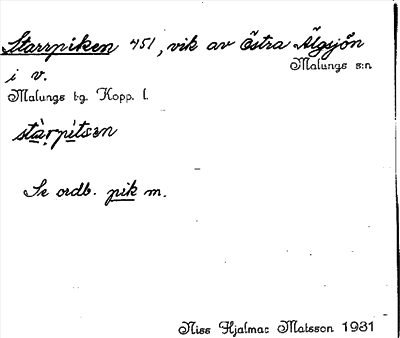 Starrpiken 451, vik av Östra Älgsjön
i v. Malungs s:n
Malungs tg. Kopp. l.
stàrpitsen
Se ordb. pik m.
Niss Hjalmar Matsson 1931